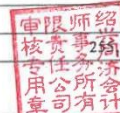 绍兴济会计
师事务所有
限责任公司
审核专用章
255